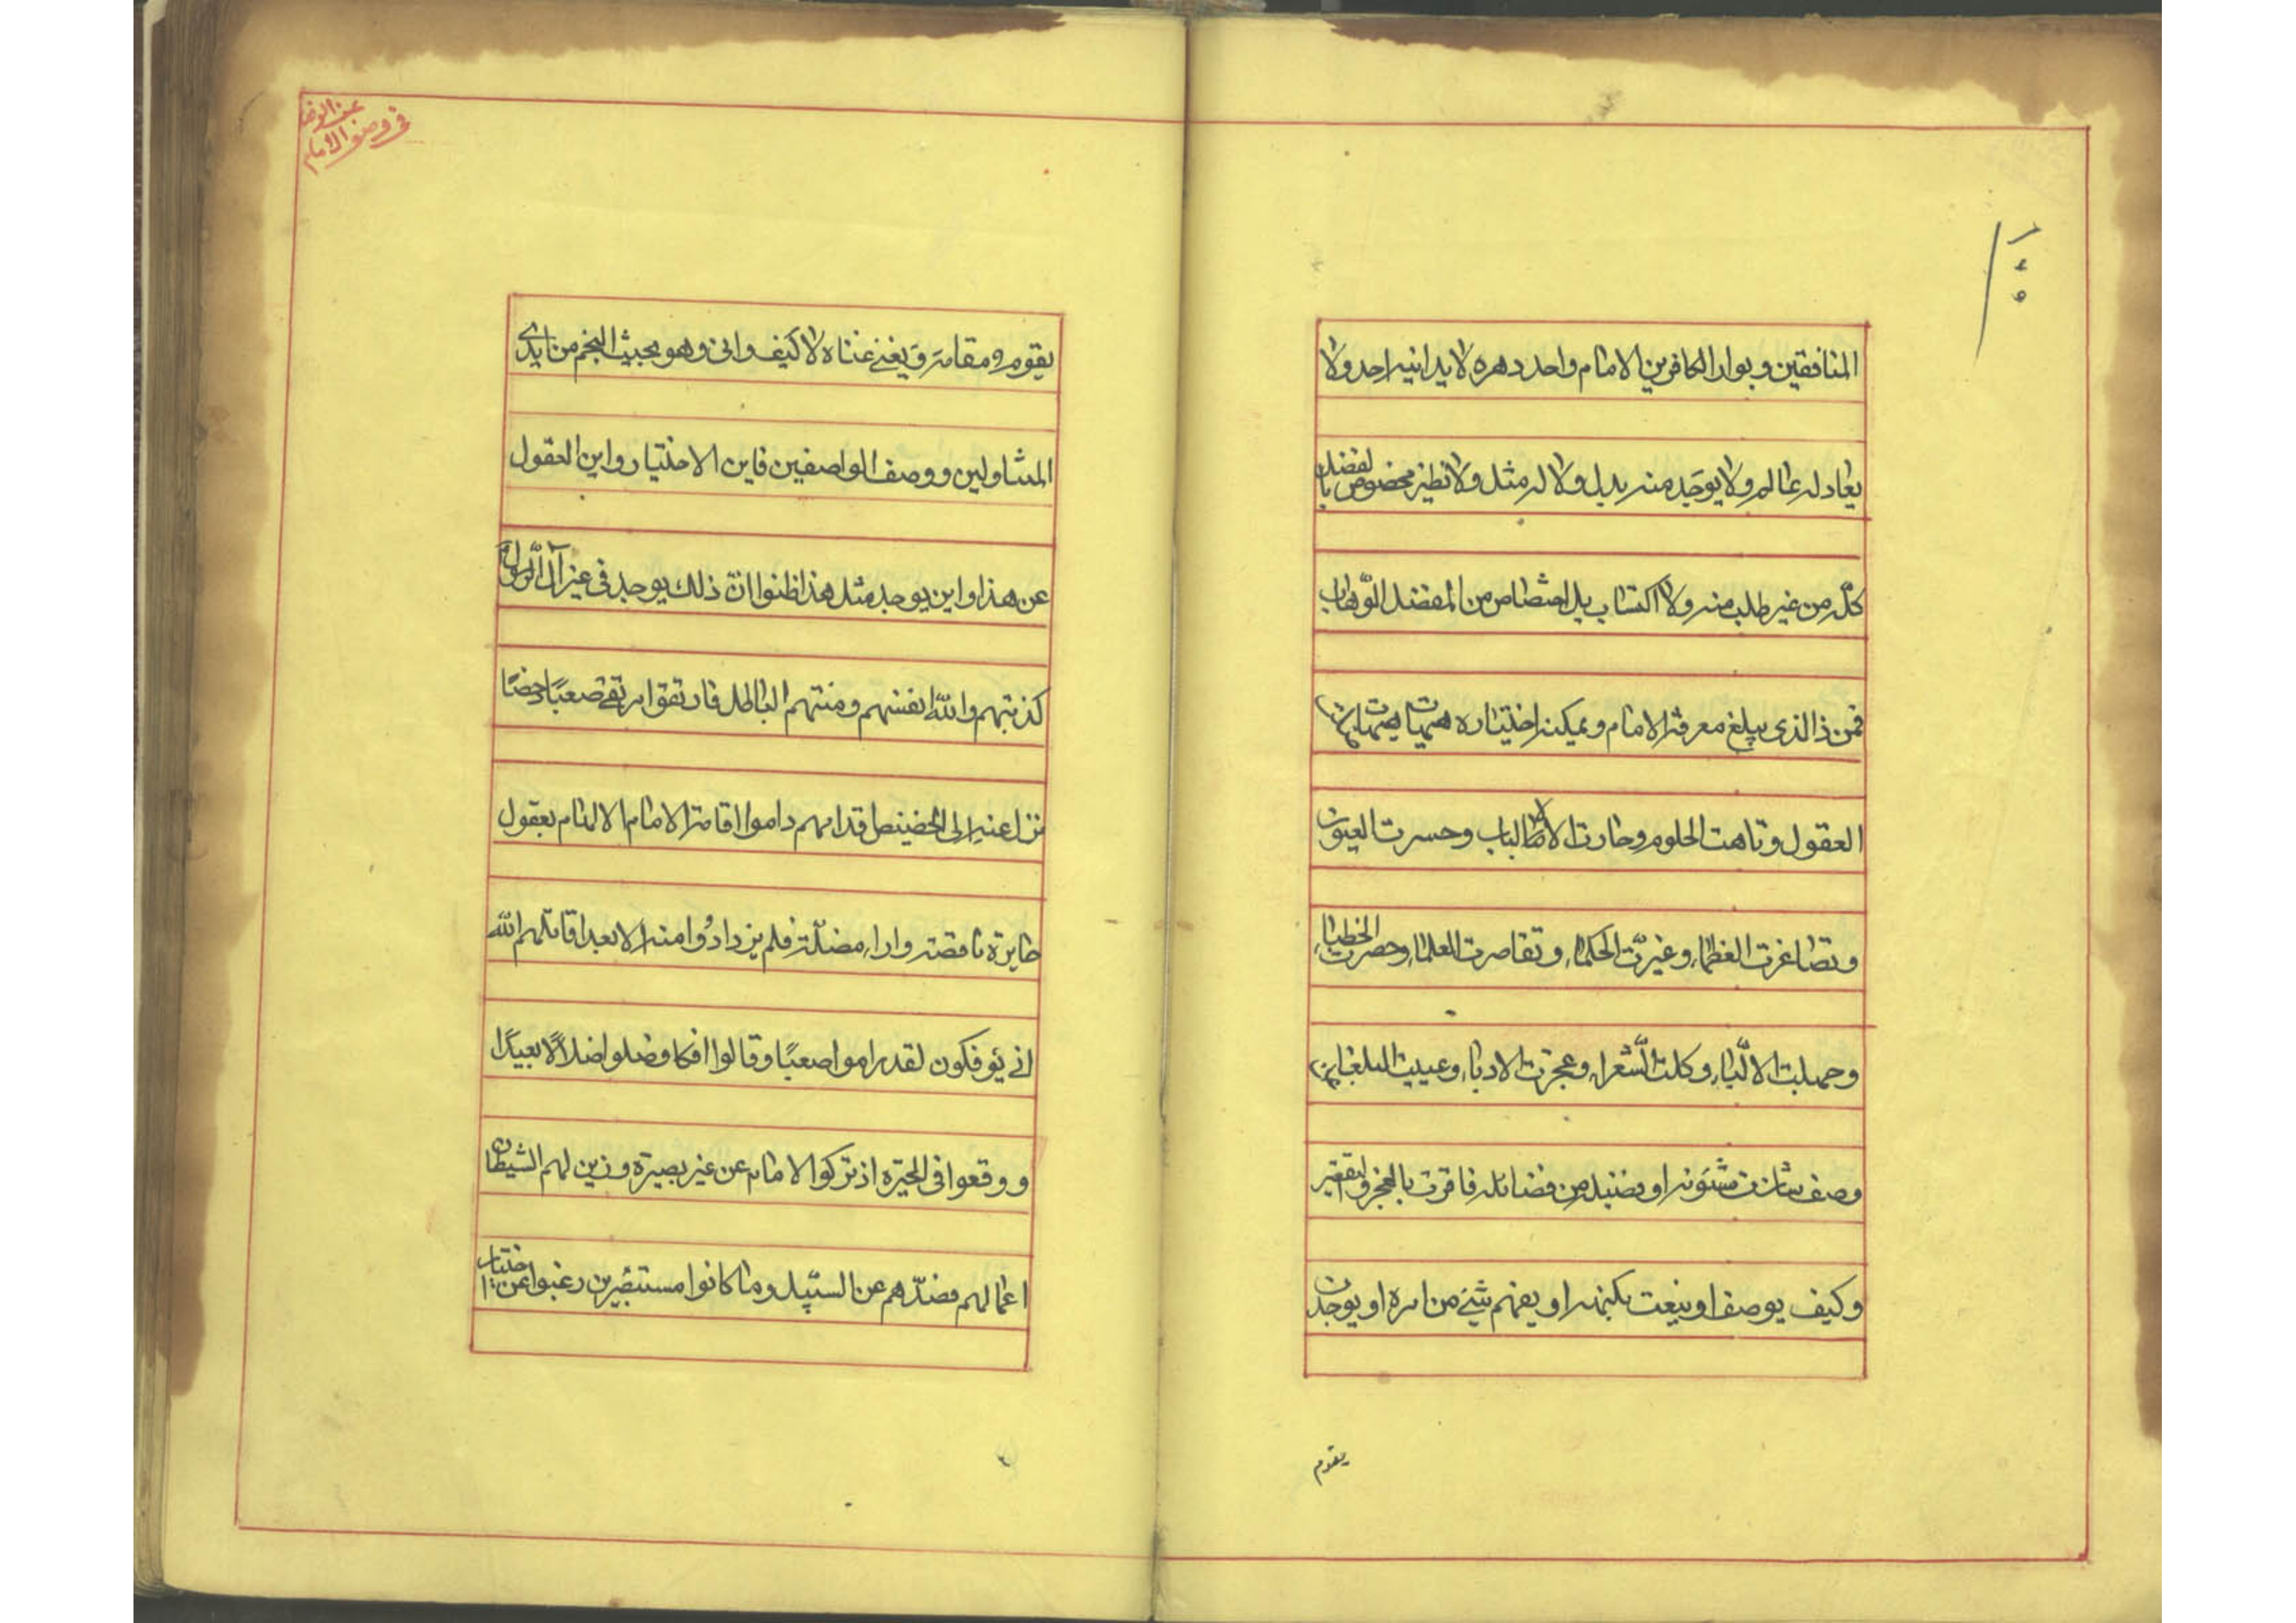 المنافقين و بوار الكافرين الامام واحد دهره لا يدانيه احد ولا
يعادله عالم ولا يوجد منه بديل ولا له مثل ولا نظير مخصوص بالفضل
كلّه من غير طلب منه ولا اكتساب بل اختصاص من المفضل الوّهاب
فمن ذا الذى يبلغ معرفة الامام و يمكنه اختياره هيهات هيهات
العقول و تاهت الحلوم و حارت الالباب و حسرت العيون
و تصاغرت العظماء و تحيّرت الحكماء و تقاصرت العلماء و حصرت الخطباء
و جهلت الالبّاء و كلت الشّعراء و عجزت الادباء و عييت البلغاء
وصف شان من شئونه او فضيلة من فضائله فاقرت بالعجز و التقصير
و كيف يوصف او ينعت بكنهه او يفهم شئ من امره او يوجد من
يقوم
عن الرضا
فى وصف الامام
يقوم مقامه و يغنى غناه لا كيف و انى و هو بحيث النجم من ايدى
المتناولين و وصف الواصفين فاين الاختيار و اين العقول
عن هذا و اين يوجد مثل هذا ظنوا انّ ذلك يوجد فى غير آل الرّسول
كذبتهم و الله انفسهم و منتهم الباطل فارتقوا مرتقى صعبًا دحضًا
تزل عنه الى الحضيض اقدامهم داموا اقامة الامام الانام بعقول
حايرة ناقصة و اراء مضلّة فلم يزدادُوا منه الا بعدا قاتلهم الله
انى يؤفكون لقد راموا صعبًا و قالوا افكا و ضلوا ضلالًا بعيدًا
و وقعوا فى الحيرة اذ تركوا الامام عن غير بصيرة و زين لهم الشيطان
اعمالهم فصدّهم عن السّبيل و ما كانوا مستبصرين رغبوا عن اختيار